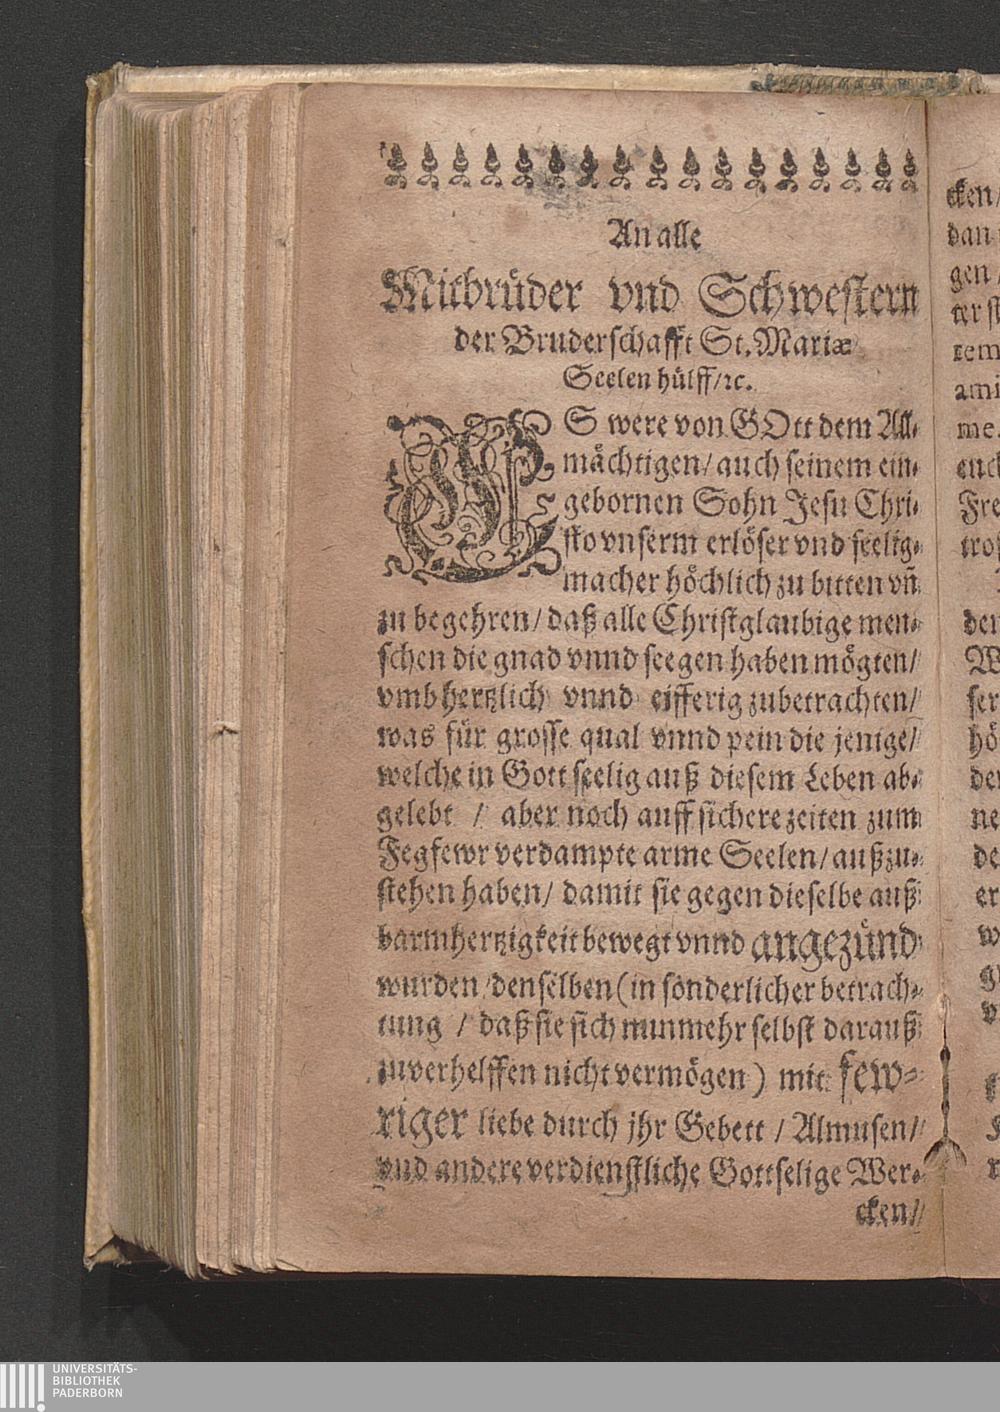 An alle
Mitbrüder vnd Schwestern
der Bruderschafft St. Mariæ
Seelen hülff/ꝛc.
ES were von GOtt dem All-
mächtigen/ auch seinem ein-
gebornen Sohn Jesu Chri-
sto vnserm erlöser vnd seelig-
macher höchlich zu bitten vñ
zu begehren/ daß alle Christglaubige men-
schen die gnad vnnd seegen haben mögten/
vmb hertzlich vnnd eifferig zubetrachten/
was für grosse qual vnnd pein die jenige/
welche in Gott seelig auß diesem Leben ab-
gelebt / aber noch auff sichere zeiten zum
Fegfewr verdampte arme Seelen/ außzu-
stehen haben/ damit sie gegen dieselbe auß
barmhertzigkeit bewegt vnnd angezünd
wurden/ denselben (in sonderlicher betrach-
tung / daß sie sich nunmehr selbst darauß
zuverhelffen nicht vermögen) mit few-
riger liebe durch jhr Gebett / Almusen/
vnd andere verdienstliche Gottselige Wer-
cken/
cken/
dan
gen/
ter st
rem
ami
me.
euch
Fre
tros
den
W
ser
hö
der
ne
de
er
w
g
v
UNIVERSITÄTS-
BIBLIOTHEK
PADERBORN